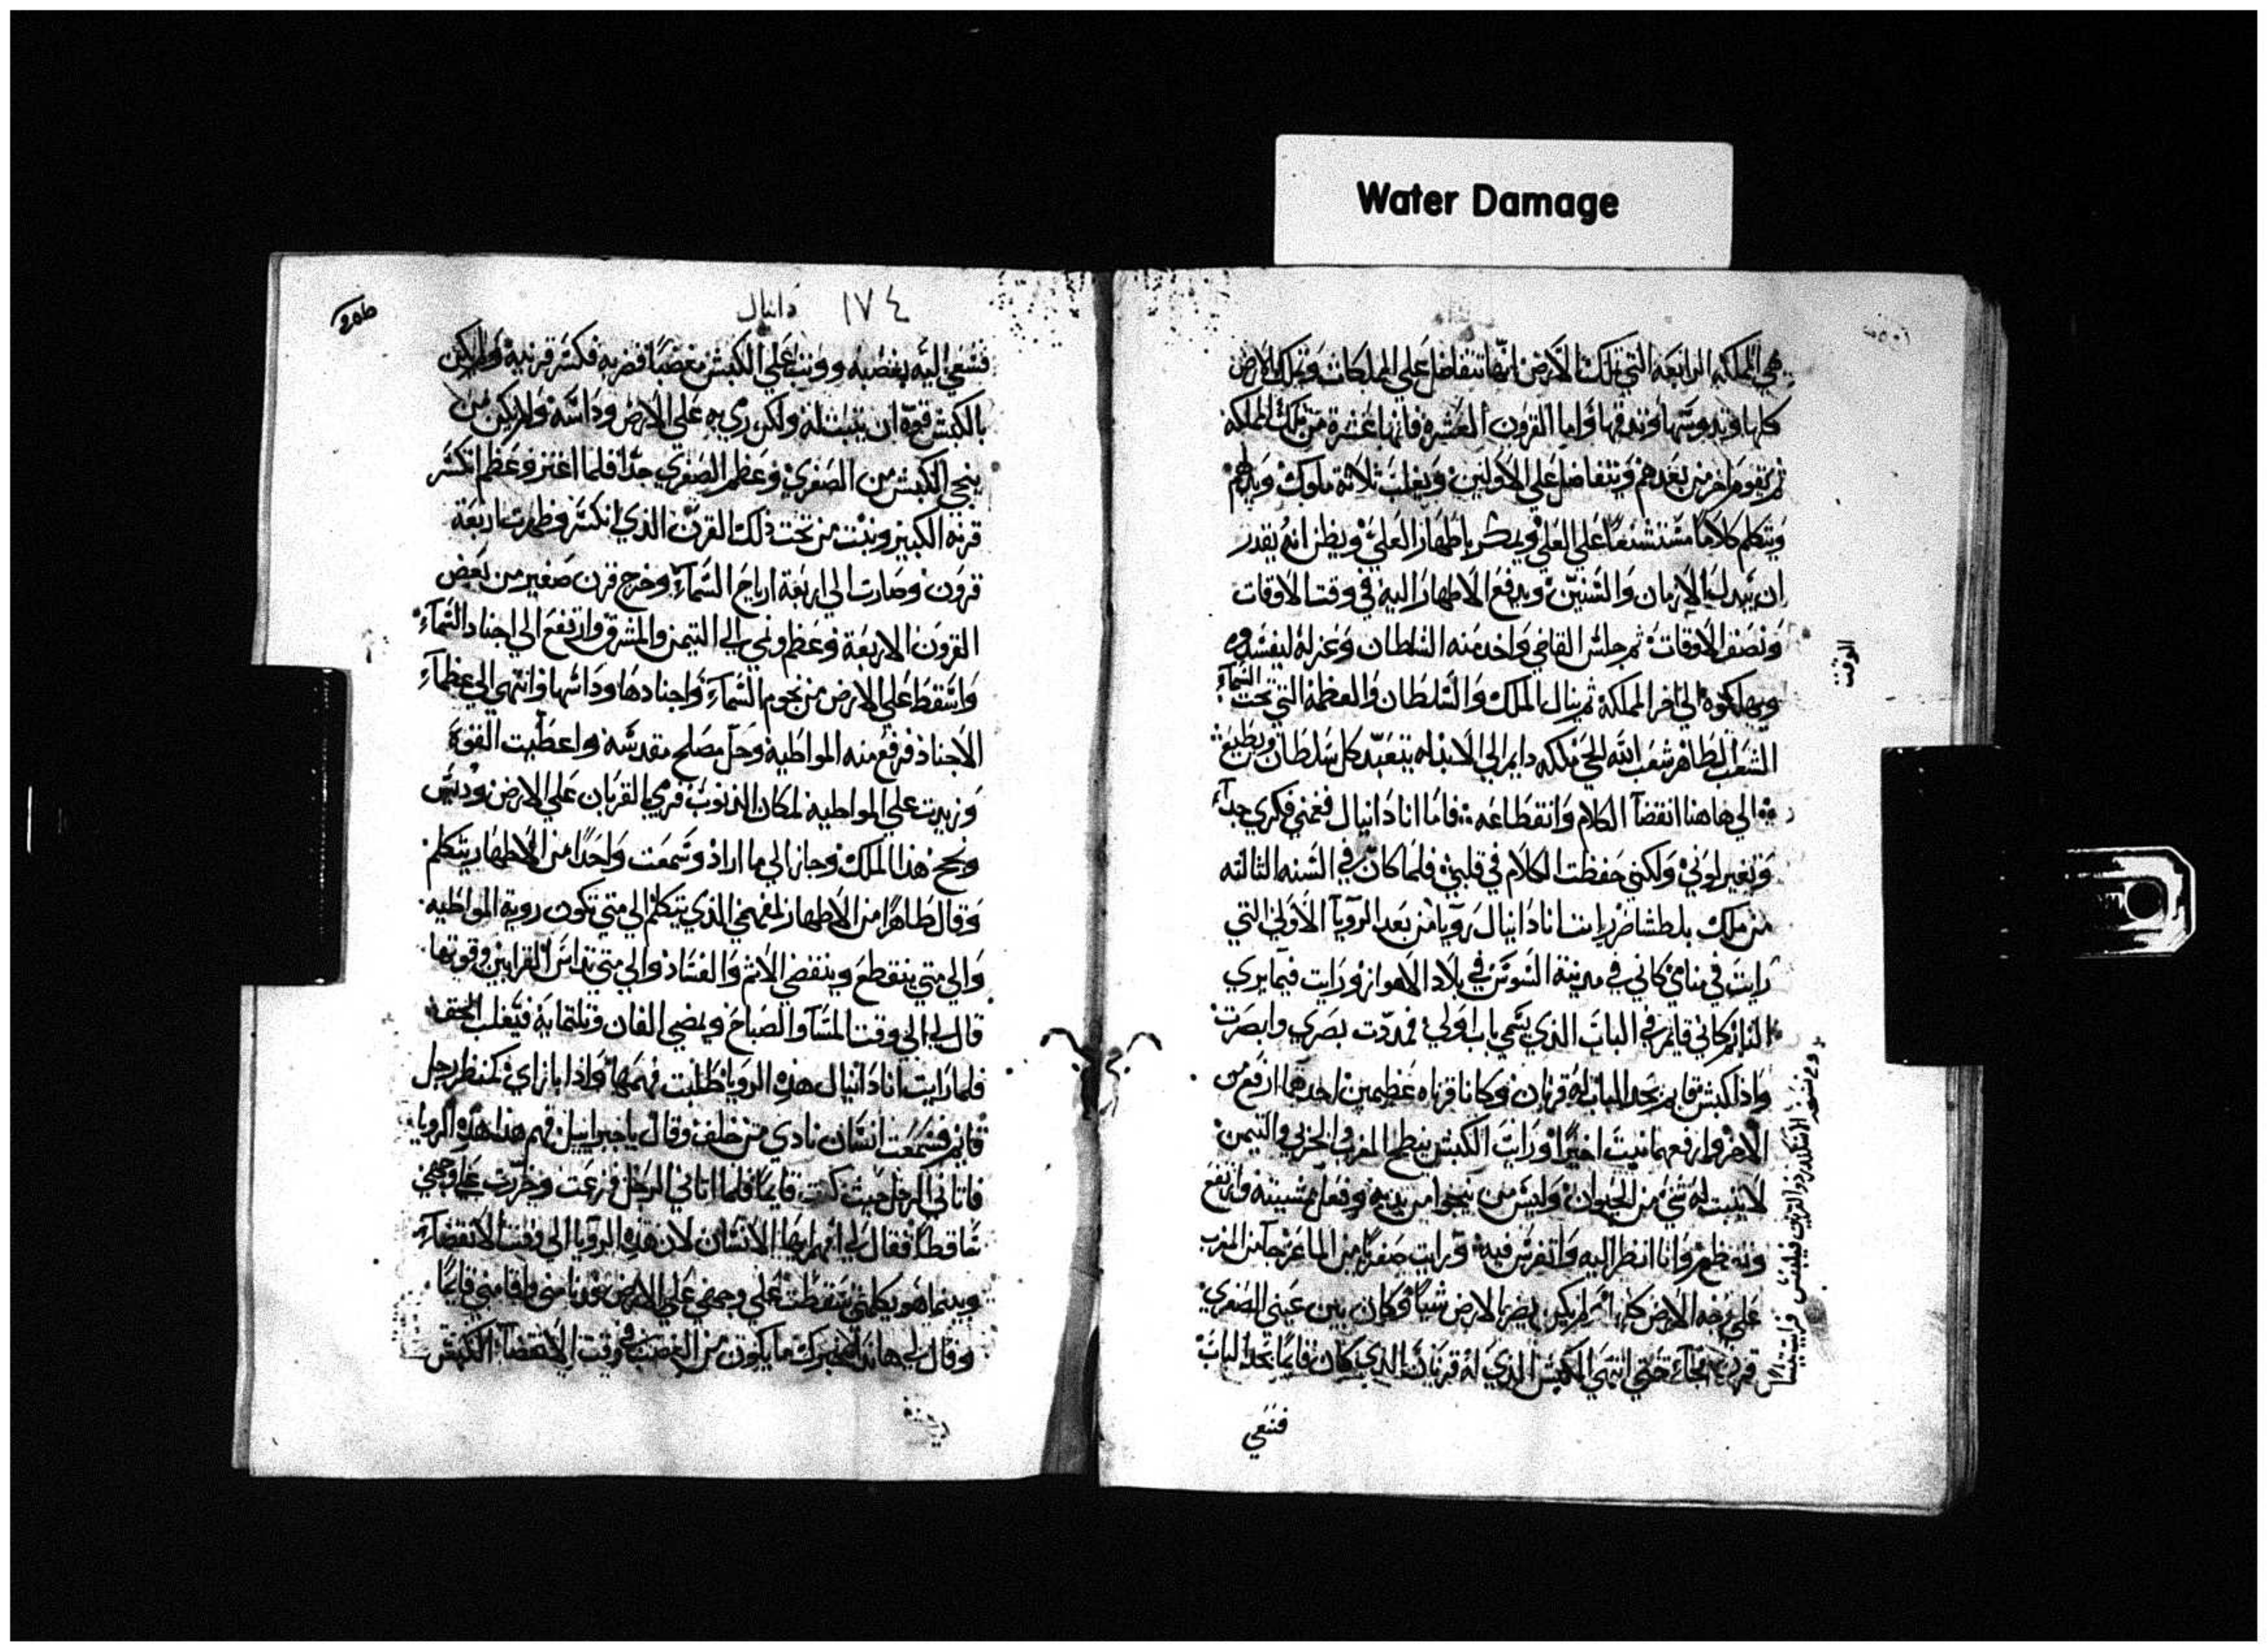 Water Damage
هي المملكه الرابعه التي تملك الارض انها تتفاضل علي المملكات وتملك الارض
كلها وتدوسها وتدقها واما القرون العشره فانها عشرة من تلك المملكه
ثم يقوم اخر من بعدهم ويتفاضل علي الاولين ويغلب ثلاثة ملوك
ويتكلم كلاما علي العلي ويمكر باطهار العلي ويظن انه يقدر
ان يبدل الازمان والسنين ويدفع الاطهار اليه في وقت الاوقات
ونصف الاوقات ثم جلس القاضي واخد منه السلطان
ويهلكوه الي اخر المملكة ثم ينال الملك والسلطان والعظمة التي تحت السماء
الشعب الطاهر شعب الله الحي ملكه دايم الي الابد له يتعبد كل سلطان ويطيع
الي هاهنا انقضا الكلام وانقطاعه فاما انا دانيال فغمني فكري جدا
وتغير لوني ولكني حفظت الكلام في قلبي فلما كان في السنه الثالثه
من ملك بلطشاصر رايت انا دانيال رويا من بعد الرويا الاولي التي
رايت في منامي كاني في مدينة السوس في بلاد الاهواز ورايت فيما يري
النايم كاني قايم في الباب الذي يسمي باب اولي فمددت بصري وابصرت
واذا كبش قايم بحد الباب له قرنان وكانا قرناه عظيمين احدهما ارفع من
الاخر وارفعهما نبت اخيرا ورايت الكبش ينطح المغرب والجربي والتيمن
لا يثبت له شي من الحيوان وليس من ينجوا من يديه وفعل بمشيته وارتفع
وتعظم وانا انظر اليه واتفرس فيه ورايت صفريا من الماعز جا من المغرب
علي وجه الارض كلها الارض شيا وكان بين عيني الصفري
قرن فجاء حتي انتهي الي الكبش الذي له قرنان الذي كان قايما بحد الباب
الوقت
الاسكندر ذو القرنين فيلبس
فسعي
١٧٤ دانيال
فسعي اليه بغضبه ووثب علي الكبش مغضبا فضربه فكسر قرنيه ولم يكن
بالكبش قوة ان يثبت له ولكن رمي به علي الارض وداسه ولم يكن من
ينجي الكبش من الصفري وعظم الصفري جدا فلما اعتز وعظم انكسر
قرنه الكبير ونبت من تحت ذلك القرن الذي انكسر وظهرت اربعة
قرون وصارت الي اربعة ارياح السماء وخرج قرن صغير من بعض
القرون الاربعة وعظم ونمي الي التيمن والمشرق وارتفع الي اجناد السماء
واسقط علي الارض من نجوم السماء واجنادها وداسها وانتهي الي عظماء
الاجناد فرفع منه المواظبة وحل مصلح مقدسه واعطيت القوة
وزيدت علي المواظبه لمكان الذنوب فرمي القربان علي الارض
ونجح هذا الملك وجاز الي ما اراد وسمعت واحدا من الاطهار يتكلم
وقال طاهرا من الاطهار لمفهمي الذي يتكلم الي متي تكون روية المواظبه
والي متي ينقطع وينقضي الاثم والفساد والي متي تداس القرابين وقوتها
قال لي الي وقت المسا والصباح ويمضي الفان وثلتماية فيغلب الحق
فلما رايت انا دانيال هذه الرويا طلبت فهمها واذا بازاي كمنظر رجل
قايم فسمعت انسان نادي من خلف وقال يا جبراييل فهم هذا هذه الرويا
فاتاني الرجل حيث كنت قايما فلما اتاني الرجل فزعت وخررت علي وجهي
ساقطا فقال لي افهم ايها الانسان لان هذه الرويا الي وقت الانقضاء
وبينما هو يكلمني سقطت علي وجهي علي الارض فدنا مني واقامني قايما
وقال لي هانذا مخبرك ما يكون من الغضب في وقت الانقضا الكبش